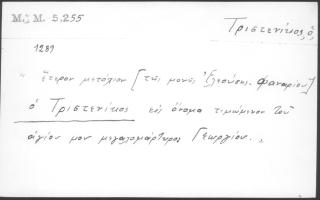 M. & M. 5.255
Τριστενίκος, ὁ,
1289
" ἕτερον μετόχιον [τῆς μονῆς Ἐλεούσης Φαναρίου]
ὁ Τριστενίκος εἰς ὄνομα τιμώμενον τοῦ
ἁγίου μου μεγαλομάρτυρος Γεωργίου. "